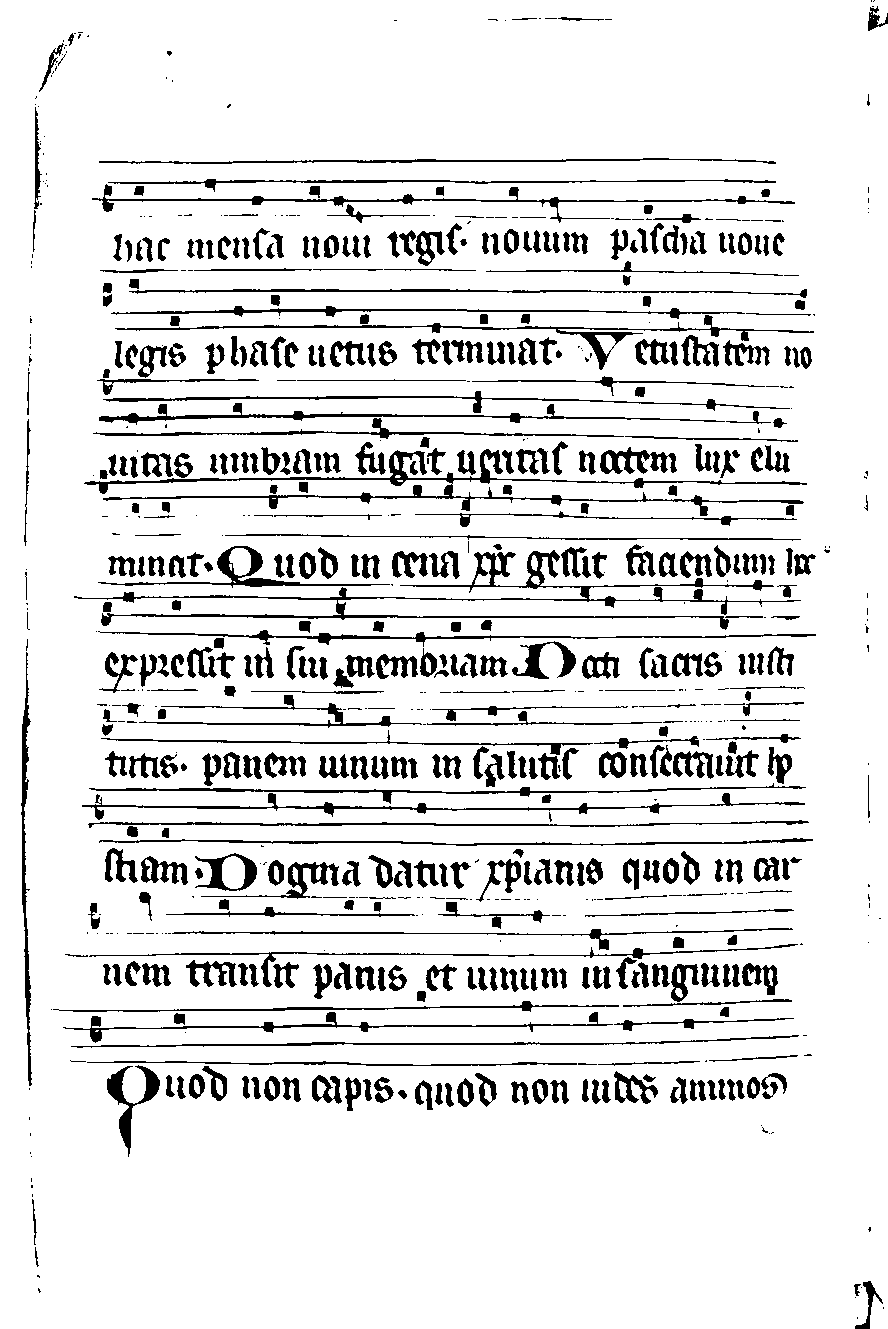 hac mensa noui regis. nouum pascha noue
legis phase uetus terminat. Vetustatem no
uitas umbram fugat ueritas noctem lux elu
minat. Quod in cena xpc gessit faciendum hc
expressit in sui memoriam Docti sacris insti
tutis. panem uinum in salutis consecrauit ho
stiam. Dogma datur xpianis quod in car
nem transit panis et uinum in sanguinem
Quod non capis. quod non uides animosa